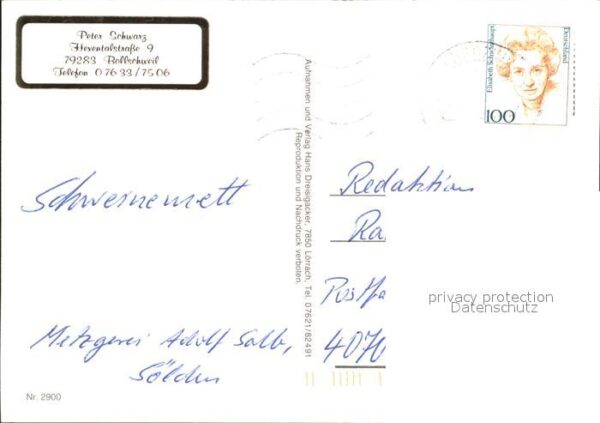 Peter Schwarz
Hexentalstraße 9
79283 Bollschweil
Telefon 07633/7506
Schweinemett
Metzgerei Adolf Salb,
Sölden
Nr. 2900
Aufnahmen und Verlag Hans Dreisigacker, 7850 Lörrach, Tel. 07621/82491
Reproduktion und Nachdruck verboten.
Elisabeth Schwarzhaupt
Deutschland
100
Redaktion
Ra
Postfa
4070
privacy protection
Datenschutz